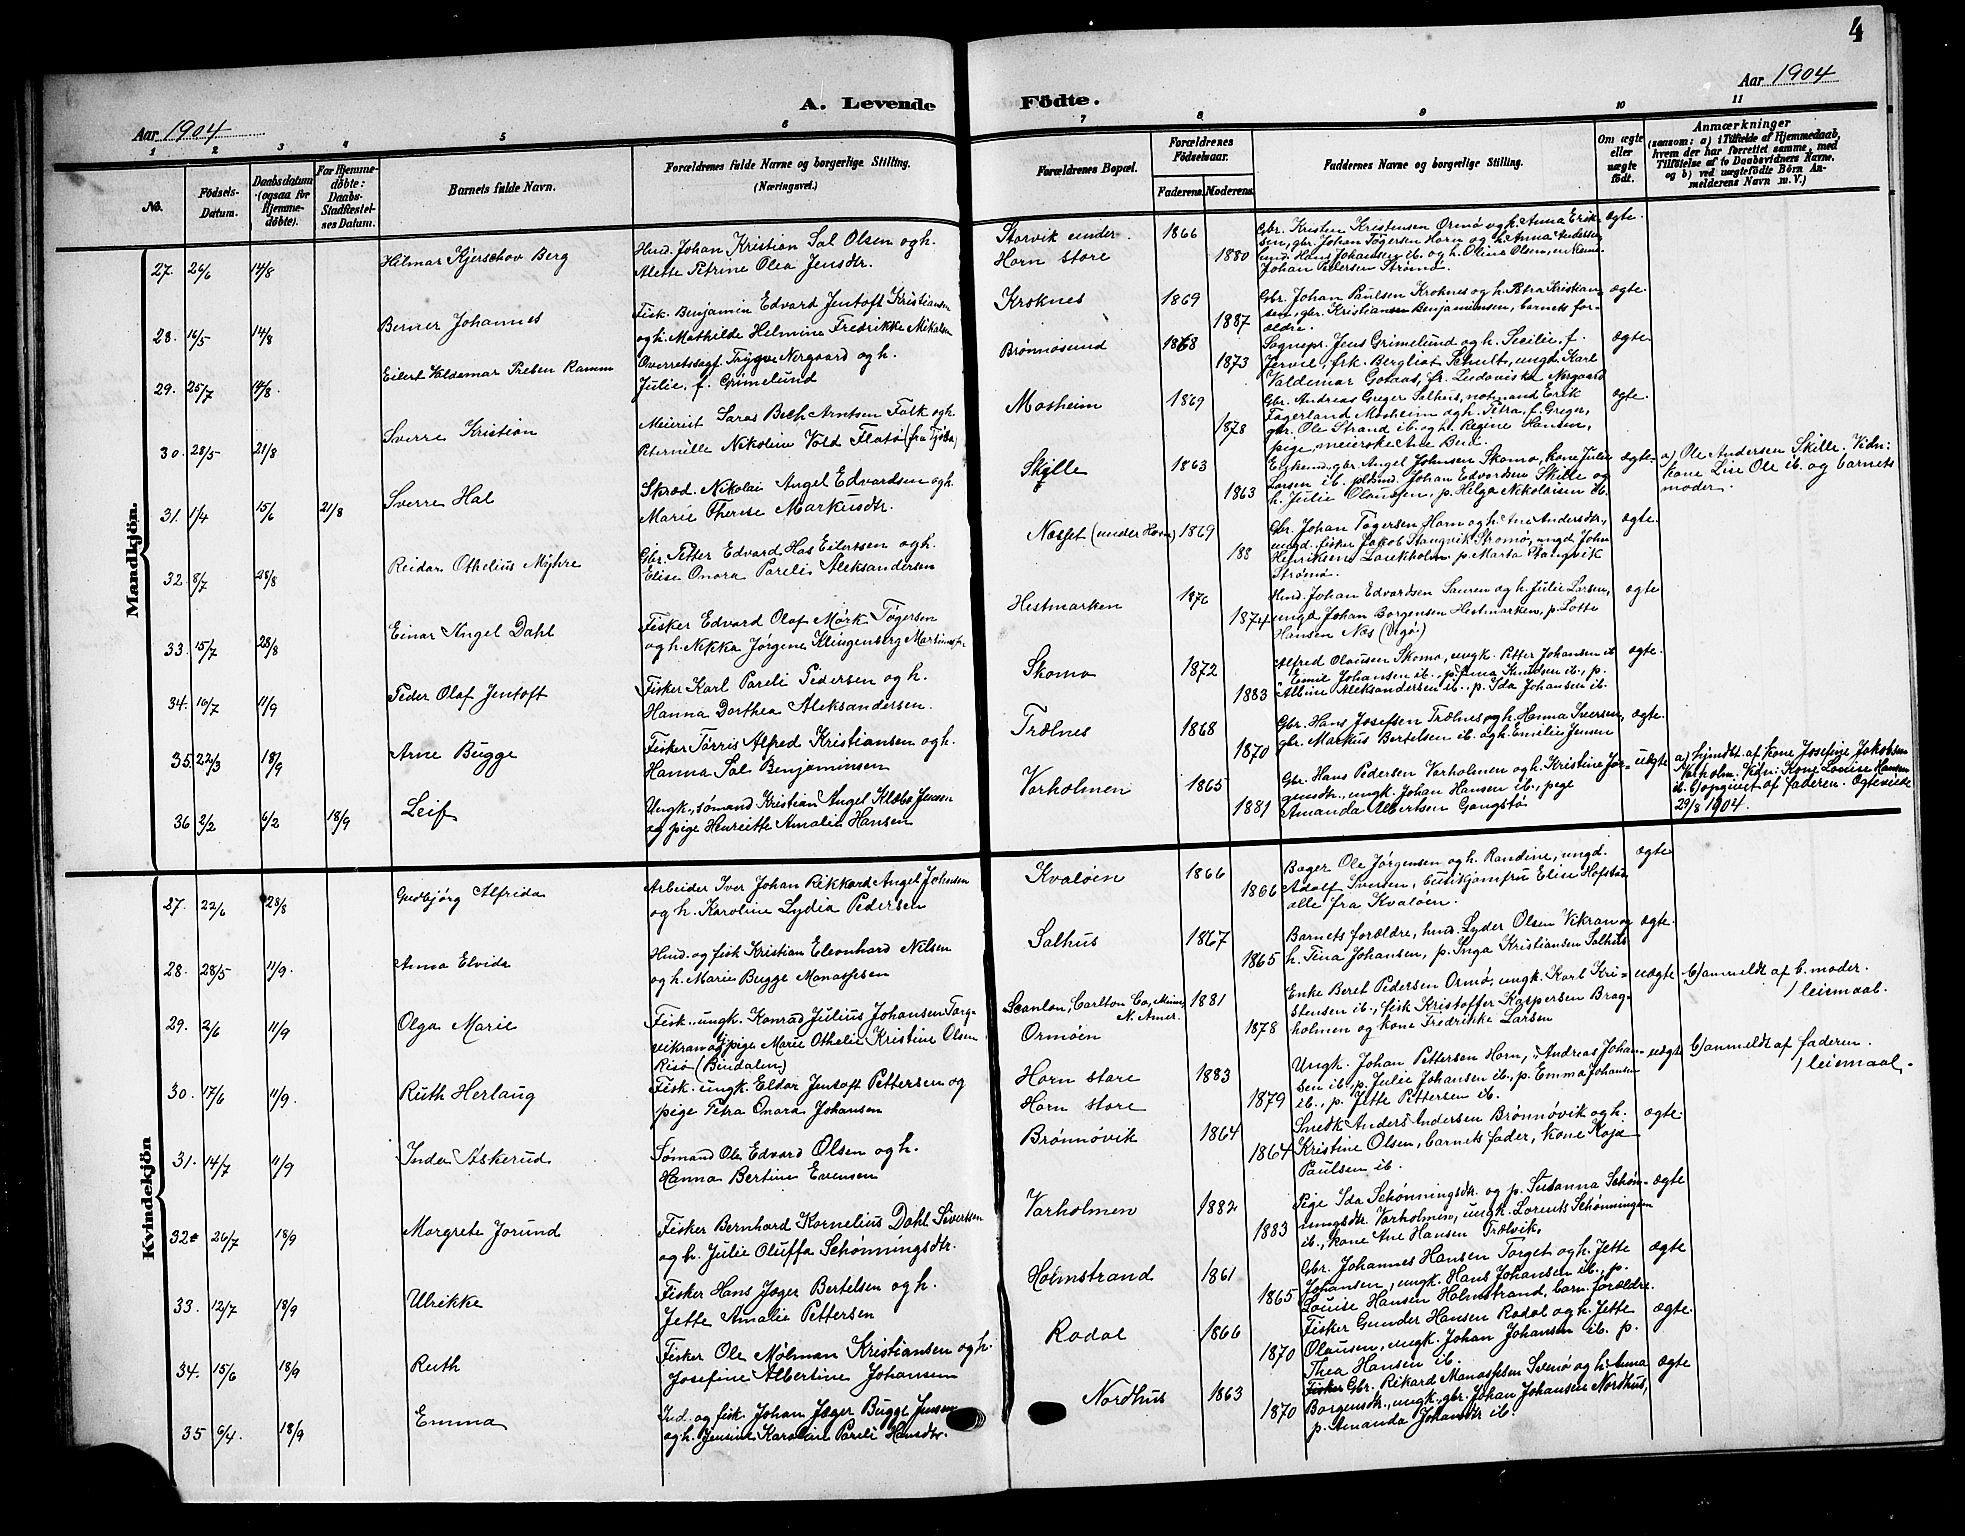 4
Aar 1904
A. Levende Födte.
Aar 1904
1 2 3 4 5 6 7 8 9 10 11
No.
Födsels-Datum.
Daabsdatum (ogsaa for Hjemme-döbte).
For Hjemme-döbte: Daabs-Stadfæstel-ses Datum.
Barnets fulde Navn.
Forældrenes fulde Navne og borgerlige Stilling. (Næringsvei.)
Forældrenes Bopæl.
Forældrenes Födselsaar.
Faderens. Moderens.
Faddernes Navne og borgerlige Stilling.
Om ægte eller uægte födt.
Anmærkninger
(saasom: a) i Tilfælde af Hjemmedaab, hvem der har forrettet samme, med Tilföielse af to Daabsvidners Navne. og b) ved uægtefödte Börn An-melderens Navn m. V.)
Mandkjön.
27. 26/6 14/8 Hilmar Kjerschov Berg
Hmd. Johan Kristian Sal Olsen og h.
Alette Petrine Olea Jensdtr.
Storvik under
Horn store
1866 1880
Gbr. Kristen Kristensen Ormø og h. Anna Erik-
sen, gbr. Johan Tøgersen Horn og h. Anna Andersen
hmd. Hans Johansen ib. og h. Oline Olsen,
Johan Pedersen Strømø.
ægte.
28. 16/5 14/8 Berner Johannes
Fisk. Benjamin Edvard Jentoft Kristiansen
og h. Mathilde Helmine Fredrikke Mikalsen
Kroknes
1869 1887
Gbr. Johan Paulsen Kroknes og h. Petra Kristian-
sen, gbr. Kristiansen Benjaminsen, barnets for-
ældre.
ægte
29. 25/7 14/8 Eilert Valdemar Preben Ramm
Overretssagf. Trygve Nergaard og h.
Julie, f. Grimelund
Brønnøsund
1868 1873
Sognepr. Jens Grimelund og h. Secilie, f.
Jervel, frk. Bergliot Schult, ungd. Karl
Valdemar Gotaas, fr. Ludoviska Nergaard
ægte.
30. 28/5 21/8 Sverre Kristian
Meierist Saras Bech Arntsen Falk og h
Peternille Nikoline Vold Flatø (fra Tjøtta)
Mosheim
1869 1878
Gbr. Andreas Greger Salhus, notmand Erik
Fagerland Mosheim og h. Petra, f. Greger,
gbr. Ole Strand ib. og h. Regine Hansen,
pige, meierske Ane Berd.
ægte
31. 1/4 15/6 21/8 Sverre Hal
Skræd. Nikolai Angel Edvardsen og h.
Marie Therese Markusdtr.
Skille
1863 1863
Enkemd. gbr. Angel Johnsen Skomo, kone Julie
Larsen ib. hmd. Johan Edvardsen Skille og
h. Julie Olaussen, p. Helga Nikolaisen ib.
ægte-
a) Ole Andersen Skille. Vidn:
kone Lise Ole ib. og barnets
moder.
32. 8/7 28/8 Reidar Othelius Myhre
Gbr. Petter Edvard Has Eilertsen og h.
Elise Onora Pareli Aleksandersen
Nesset (under Horn)
1869 188
Gbr. Johan Tøgersen Horn og h. Ane Andersdtr.,
ungd. fisker Jakob Stangvik Strømø, ungd. John
Henriksen Laukholm, p. Marta Stangvik
Strømø.
ægte.
33. 15/7 28/8 Einar Angel Dahl
Fisker Edvard Olaf Mørk Tøgersen
og h. Nikka Jørgene Klingenberg
Hestmarken
1876 1874
Hmd. Johan Edvardsen Sauren og h. Julie Larsen,
ungd Johan Borgensen Hestmarken, p. Lotte
Hansen Nes (Vegø)
ægte
34. 10/7 11/9 Peder Olaf Jentoft
Fisker Karl Pareli Pedersen og h.
Hanna Dorthea Aleksandersen.
Skomo
1872 1883
Alfred Olausen Skomo, ungk. Petter Johansen ib
" Emil Johansen ib., p. Anna Knudsen ib., p.
Albine Aleksandersen ib., p. Ida Johansen ib.
ægte.
35. 22/3 18/9 Arne Bugge
Fisker Tørris Alfred Kristiansen og h.
Hanna Sal Benjaminsen
Trælnes
1868 1870
Gbr. Hans Josefsen Trælnes og h. Hanna Iversen,
gbr. Markus Bertelsen ib. og h. Emilie Jensen
ægte.
36 2/2 6/2 18/9 Leif
Ungk., sømand Kristian Angel Klæbo Jensen
og pige Henriette Amalie Hansen
Varholmen
1865 1881
Gbr. Hans Pedersen Varholmen og h. Kristine Jør-
gensdtr., ungk. Johan Hansen ib., pige
Amanda Albertsen Gangstø
uægte
a) Hjmdbt. af kone Josefine Jakobsen
Varholm. Vidn: Kone Louise Hansen
ib. b) opgivet af faderen. Ægteviede
29/8 1904.
Kvindekjön
27. 22/6 28/8 Gudbjørg Alfrida
Arbeider Iver Johan Rikkard Angel Johnsen
og h. Karoline Lydia Pedersen
Kvaløen
1866 1866
Bager Ole Jørgensen og h. Randine, ungd.
Adolf Iversen, butikjomfru Elise Hofstad
alle fra Kvaløen.
ægte
28. 28/5 11/9. Anna Elvida
Hmd. og fisk Kristian Eleonhard Nilsen
og h. Marie Bugge Manassesen
Salhus
1867 1865
Barnets forældre, hmd. Lyder Olsen Vikran og
h. Tina Johansen, p. Inga Kristiansen Salhus
ægte.
29. 2/6 11/9 Olga Marie
Fisk., ungk. Konrad Julius Johansen Torg-
vikran og pige Marie Othelie Kristine Olsen
Risø (Bindalen)
Scanlon, Carlton Co, Minn.
N. Amer.
Ormøen
1881 1878
Enke Beret Pedersen Ormø, ungk. Karl Kri-
stensen ib., fisk Kristoffer Kaspersen Brag-
holmen og kone Fredrikke Larsen
uægte
b) anmeldt af b. moder.
1 leiemaal.
30. 17/6 11/9. Ruth Herlaug
Fisk. ungk. Eldor Jentoft Pettersen og
pige Petra Onora Johansen
Horn store
Horn store
1883 1879
Ungk. Johan Pettersen Horn, " Andreas Johan-
sen ib., p. Julie Johansen ib., p. Emma Johansen
ib., p. Jette Pettersen ib.
uægte
b) anmeldt af faderen.
1 leiemaal.
31. 14/7 11/9 Inda Askerud
Sømand Ole Edvard Olsen og h.
Hanna Bertine Evensen
Brønnøvik
1864 1864
Smed Anders Andersen Brønnøvik og h.
Kristine Olsen, barnets fader, kone Kaja
Paulsen ib.
ægte.
32. 26/7 18/9 Margrete Jorund
Fisker Bernhard Kornelius Dahl Sivertsen
og h. Julie Oluffa Schønningsdtr.
Varholmen
1882 1883
Pige Ida Schønningsdtr. og p. Susanna Schøn-
ningsdtr. Varholmen, ungk. Lorents Schønningsen
ib., kone Ane Hansen Trælvik,
ægte
33. 12/7 18/9 Ulrikke
Fisker Hans Jæger Bertelsen og h.
Jette Amalie Pettersen
Holmstrand
1861 1865
Gbr. Johannes Hansen Torget og h. Jette
Johansen, ungk. Hans Johansen ib., p.
Louise Hansen Holmstrand, barn. forældre.
ægte
34. 15/6 18/9 Ruth
Fisker Ole Mølman Kristiansen og h.
Josefine Albertine Johansen
Rodal
1866 1870
Fisker Gunder Hansen Rodal og h. Jette
Olausen, ungk. Johan Johansen ib. p.
Thea Hansen ib.
ægte.
35 6/4. 18/9 Emma
Ind. og fisk. Johan Jæger Bugge Jensen
og h. Jensine Karoline Pareli Hansdtr.
Nordhus
1863 1870
Fisker Gbr. Rikard Manassesen Svemø og h. Anna
Borgensdtr., ungk., gbr. Johan Johansen Nordhus,
p. Amanda Johansdtr ib.
ægte